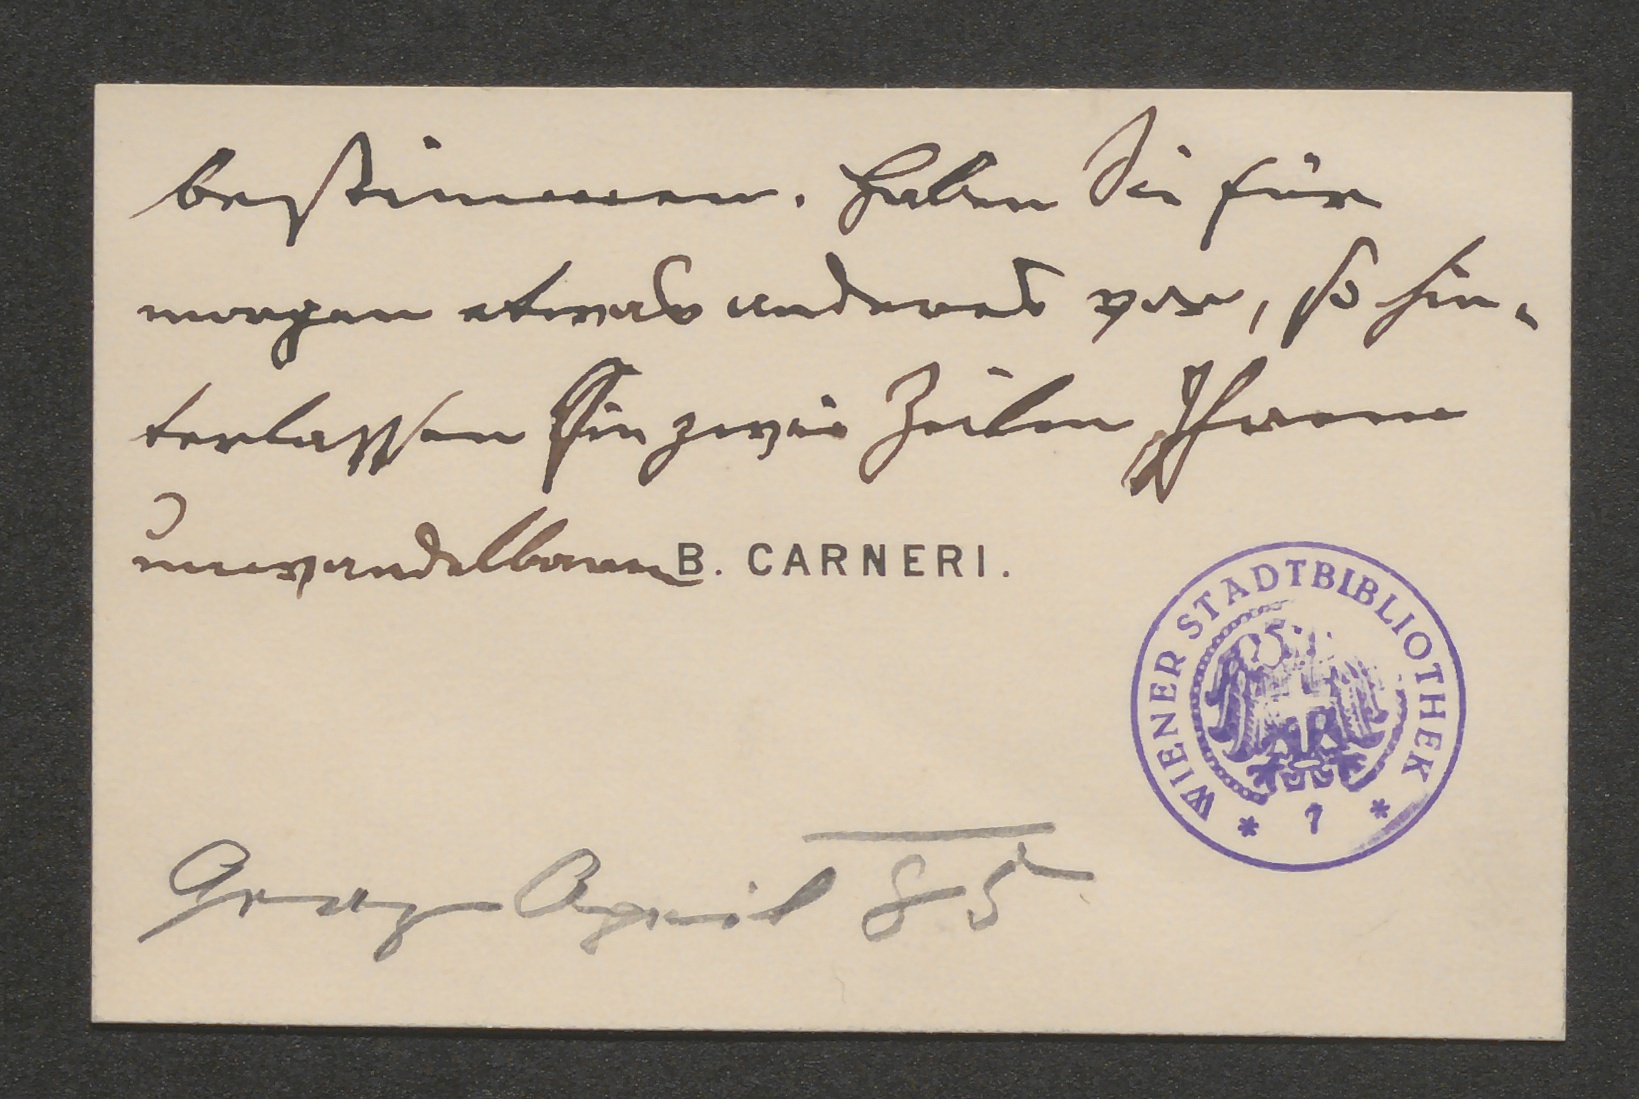 bestimmen. Haben Sie für
morgen etwas anderes vor, so hin-
terlassen Sie zwei Zeilen Ihrem
unwandelbaren B. CARNERI.
WIENER STADTBIBLIOTHEK
* 1 *
Graz April 85